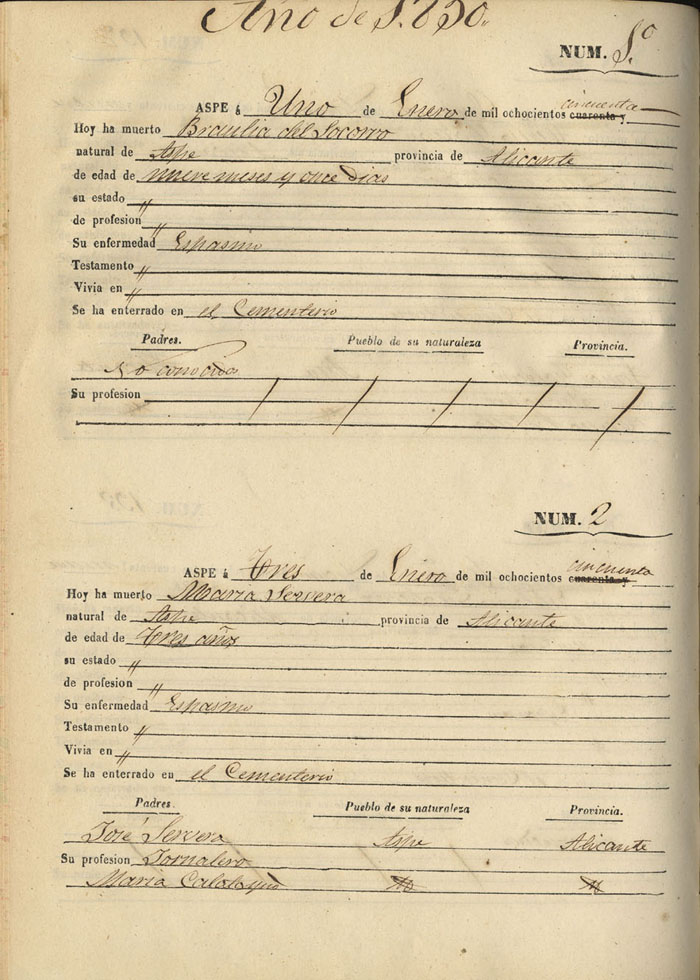 Año de 1.850.
NUM. 1º
cincuenta
ASPE á Uno de Enero de mil ochocientos cuarenta y
Hoy ha muerto Braulia del Socorro
natural de Aspe provincia de Alicante
de edad de nueve meses y once dias
su estado "
de profesion "
Su enfermedad Espasmo
Testamento "
Vivia en "
Se ha enterrado en el Cementerio
Padres. Pueblo de su naturaleza Provincia.
No conocida
Su profesion
NUM. 2
cincuenta
ASPE á Tres de Enero de mil ochocientos cuarenta y
Hoy ha muerto Maria Servera
natural de Aspe provincia de Alicante
de edad de Tres años
su estado "
de profesion "
Su enfermedad Espasmo
Testamento "
Vivia en "
Se ha enterrado en el Cementerio
Padres. Pueblo de su naturaleza Provincia.
José Servera Aspe Alicante
Su profesion Jornalero
Maria